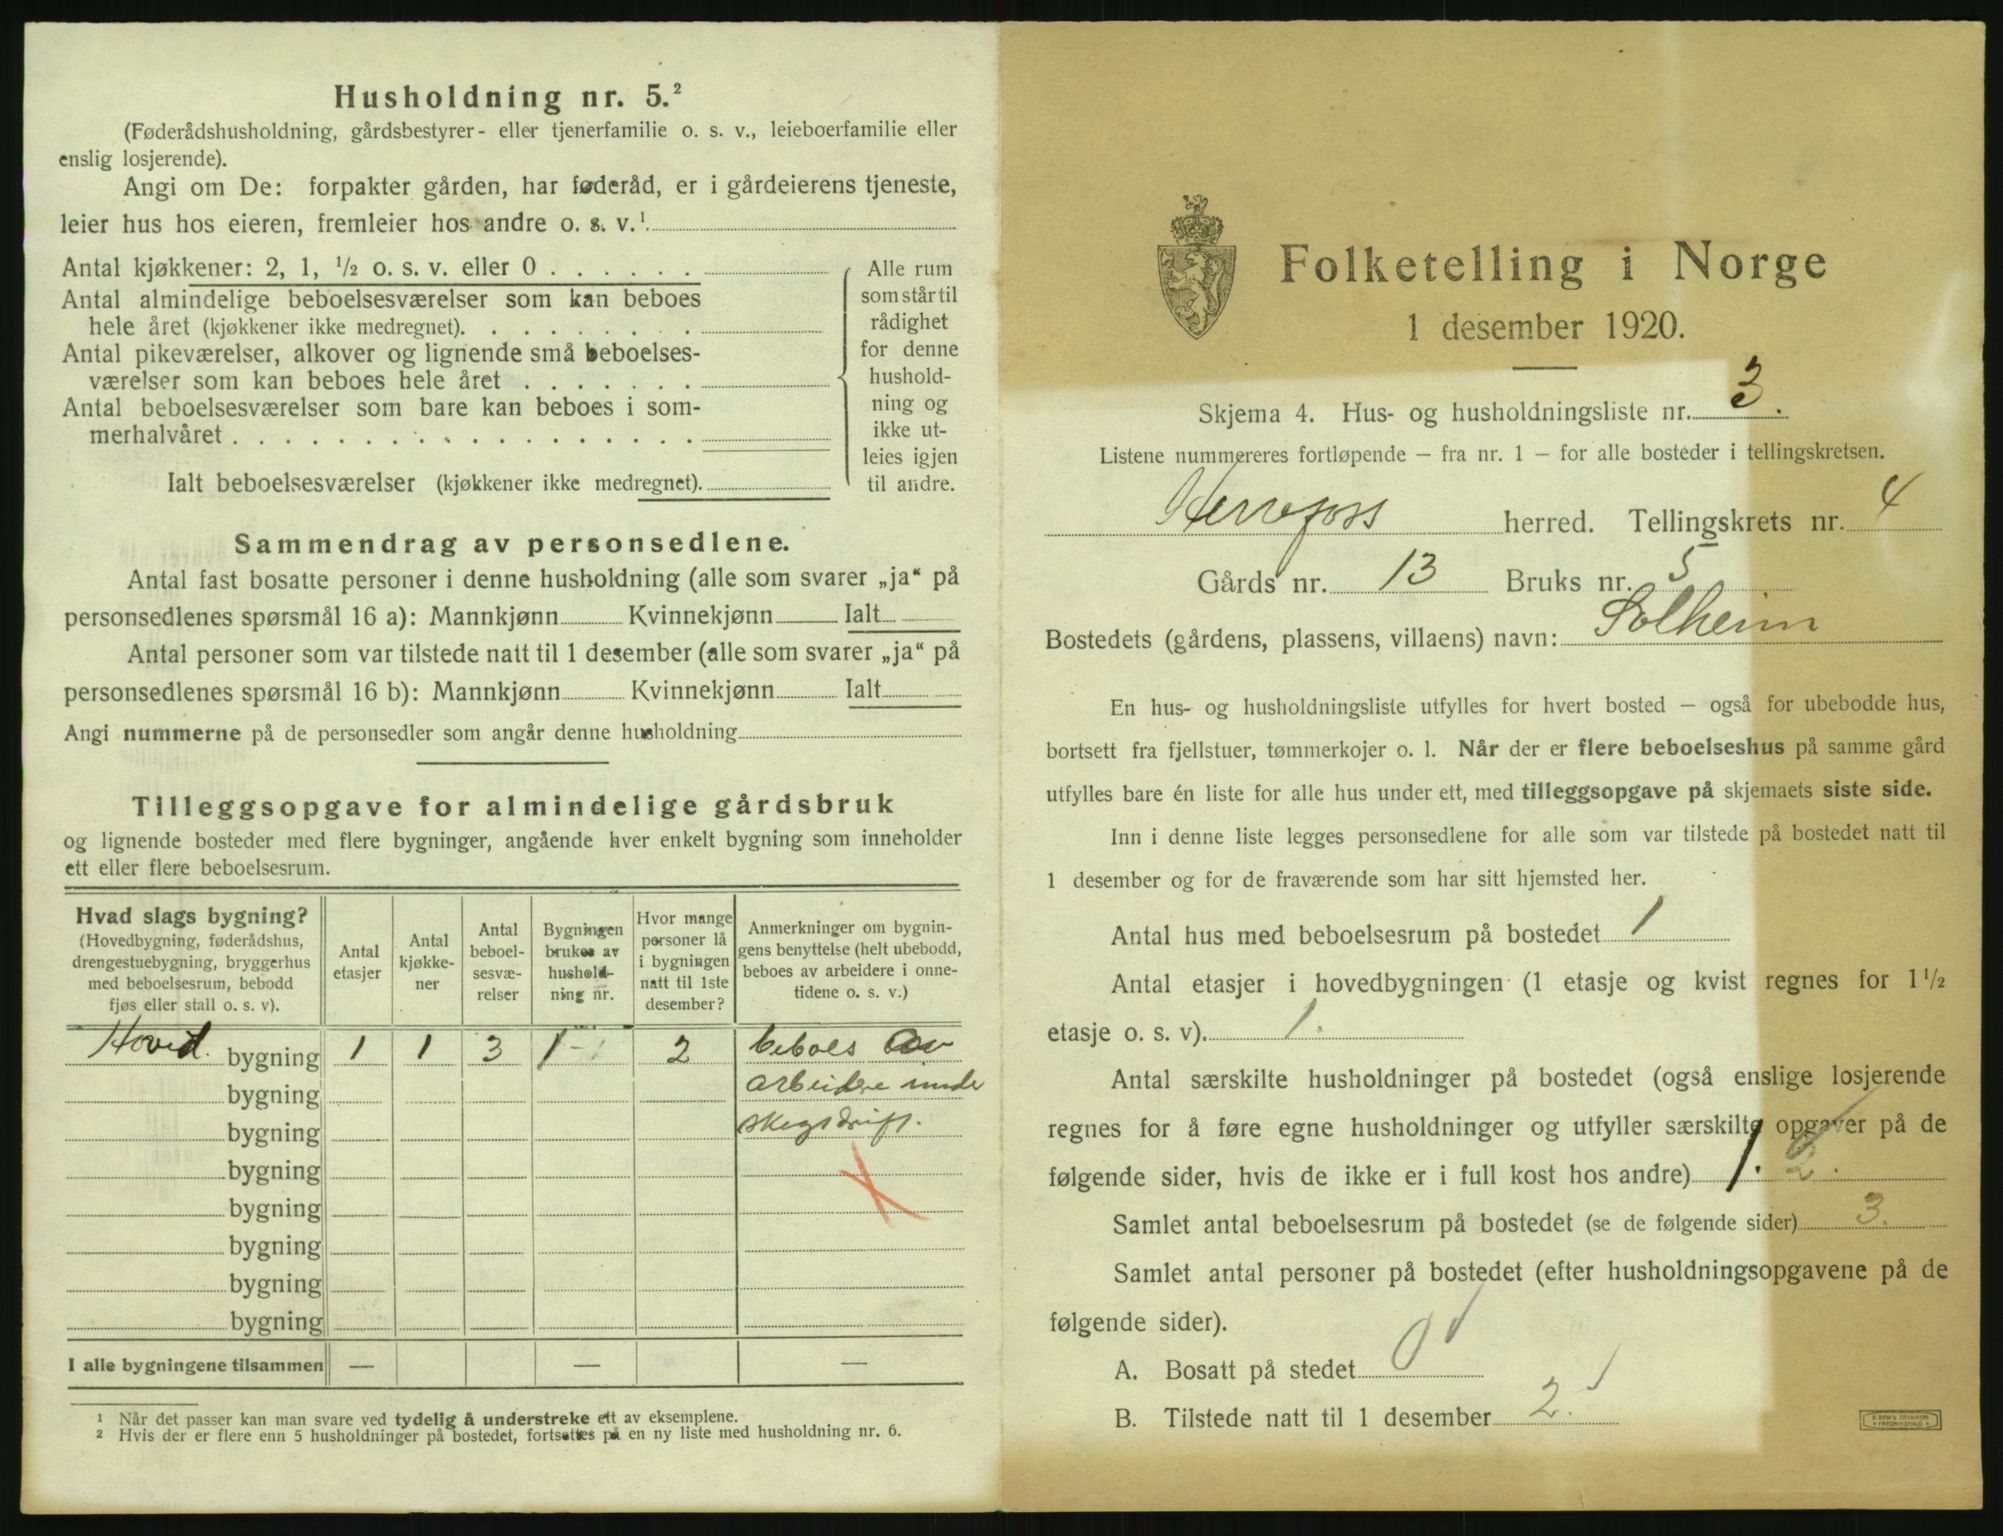 Husholdning nr. 5.²
(Føderådshusholdning, gårdsbestyrer- eller tjenerfamilie o. s. v., leieboerfamilie eller
enslig losjerende).
Angi om De: forpakter gården, har føderåd, er i gårdeierens tjeneste,
leier hus hos eieren, fremleier hos andre o. s. v.¹
Antal kjøkkener: 2, 1, ½ o. s. v. eller 0 . . . . . .
Antal almindelige beboelsesværelser som kan beboes
hele året (kjøkkener ikke medregnet). . . . . . . . .
Antal pikeværelser, alkover og lignende små beboelses-
værelser som kan beboes hele året . . . . . . .
Antal beboelsesværelser som bare kan beboes i som-
merhalvåret . . . . . . . . . . . . . . . . . .
Ialt beboelsesværelser (kjøkkener ikke medregnet).
Alle rum
som står til
rådighet
for denne
hushold-
ning og
ikke ut-
leies igjen
til andre.
Sammendrag av personsedlene.
Antal fast bosatte personer i denne husholdning (alle som svarer „ja“ på
personsedlenes spørsmål 16 a): Mannkjønn Kvinnekjønn Ialt
Antal personer som var tilstede natt til 1 desember (alle som svarer „ja“ på
personsedlenes spørsmål 16 b): Mannkjønn Kvinnekjønn Ialt
Angi nummerne på de personsedler som angår denne husholdning
Tilleggsopgave for almindelige gårdsbruk
og lignende bosteder med flere bygninger, angående hver enkelt bygning som inneholder
ett eller flere beboelsesrum.
Hvad slags bygning?
(Hovedbygning, føderådshus,
drengestuebygning, bryggerhus
med beboelsesrum, bebodd
fjøs eller stall o. s. v).
Antal
etasjer
Antal
kjøkke-
ner
Antal
beboel-
sesvæ-
relser
Bygningen
brukes av
hushold-
ning nr.
Hvor mange
personer lå
i bygningen
natt til 1ste
desember?
Anmerkninger om bygnin-
gens benyttelse (helt ubebodd,
beboes av arbeidere i onne-
tidene o. s. v.)
Hoved. bygning 1 1 3 1 2 beboes av
bygning arbeidere under
bygning skogsdrift.
bygning
bygning
bygning
bygning
bygning
I alle bygningene tilsammen — — —
¹ Når det passer kan man svare ved tydelig å understreke ett av eksemplene.
² Hvis der er flere enn 5 husholdninger på bostedet, fortsettes på en ny liste med husholdning nr. 6.
Folketelling i Norge
1 desember 1920.
Skjema 4. Hus- og husholdningsliste nr. 3.
Listene nummereres fortløpende — fra nr. 1 — for alle bosteder i tellingskretsen.
Herrefoss herred. Tellingskrets nr. 4
Gårds nr. 13 Bruks nr. 5
Bostedets (gårdens, plassens, villaens) navn: Solheim
En hus- og husholdningsliste utfylles for hvert bosted — også for ubebodde hus,
bortsett fra fjellstuer, tømmerkojer o. l. Når der er flere beboelseshus på samme gård
utfylles bare én liste for alle hus under ett, med tilleggsopgave på skjemaets siste side.
Inn i denne liste legges personsedlene for alle som var tilstede på bostedet natt til
1 desember og for de fraværende som har sitt hjemsted her.
Antal hus med beboelsesrum på bostedet 1
Antal etasjer i hovedbygningen (1 etasje og kvist regnes for 1½
etasje o. s. v). 1.
Antal særskilte husholdninger på bostedet (også enslige losjerende
regnes for å føre egne husholdninger og utfyller særskilte opgaver på de
følgende sider, hvis de ikke er i full kost hos andre) 1. 2.
Samlet antal beboelsesrum på bostedet (se de følgende sider) 3.
Samlet antal personer på bostedet (efter husholdningsopgavene på de
følgende sider).
A. Bosatt på stedet 0
B. Tilstede natt til 1 desember 2.